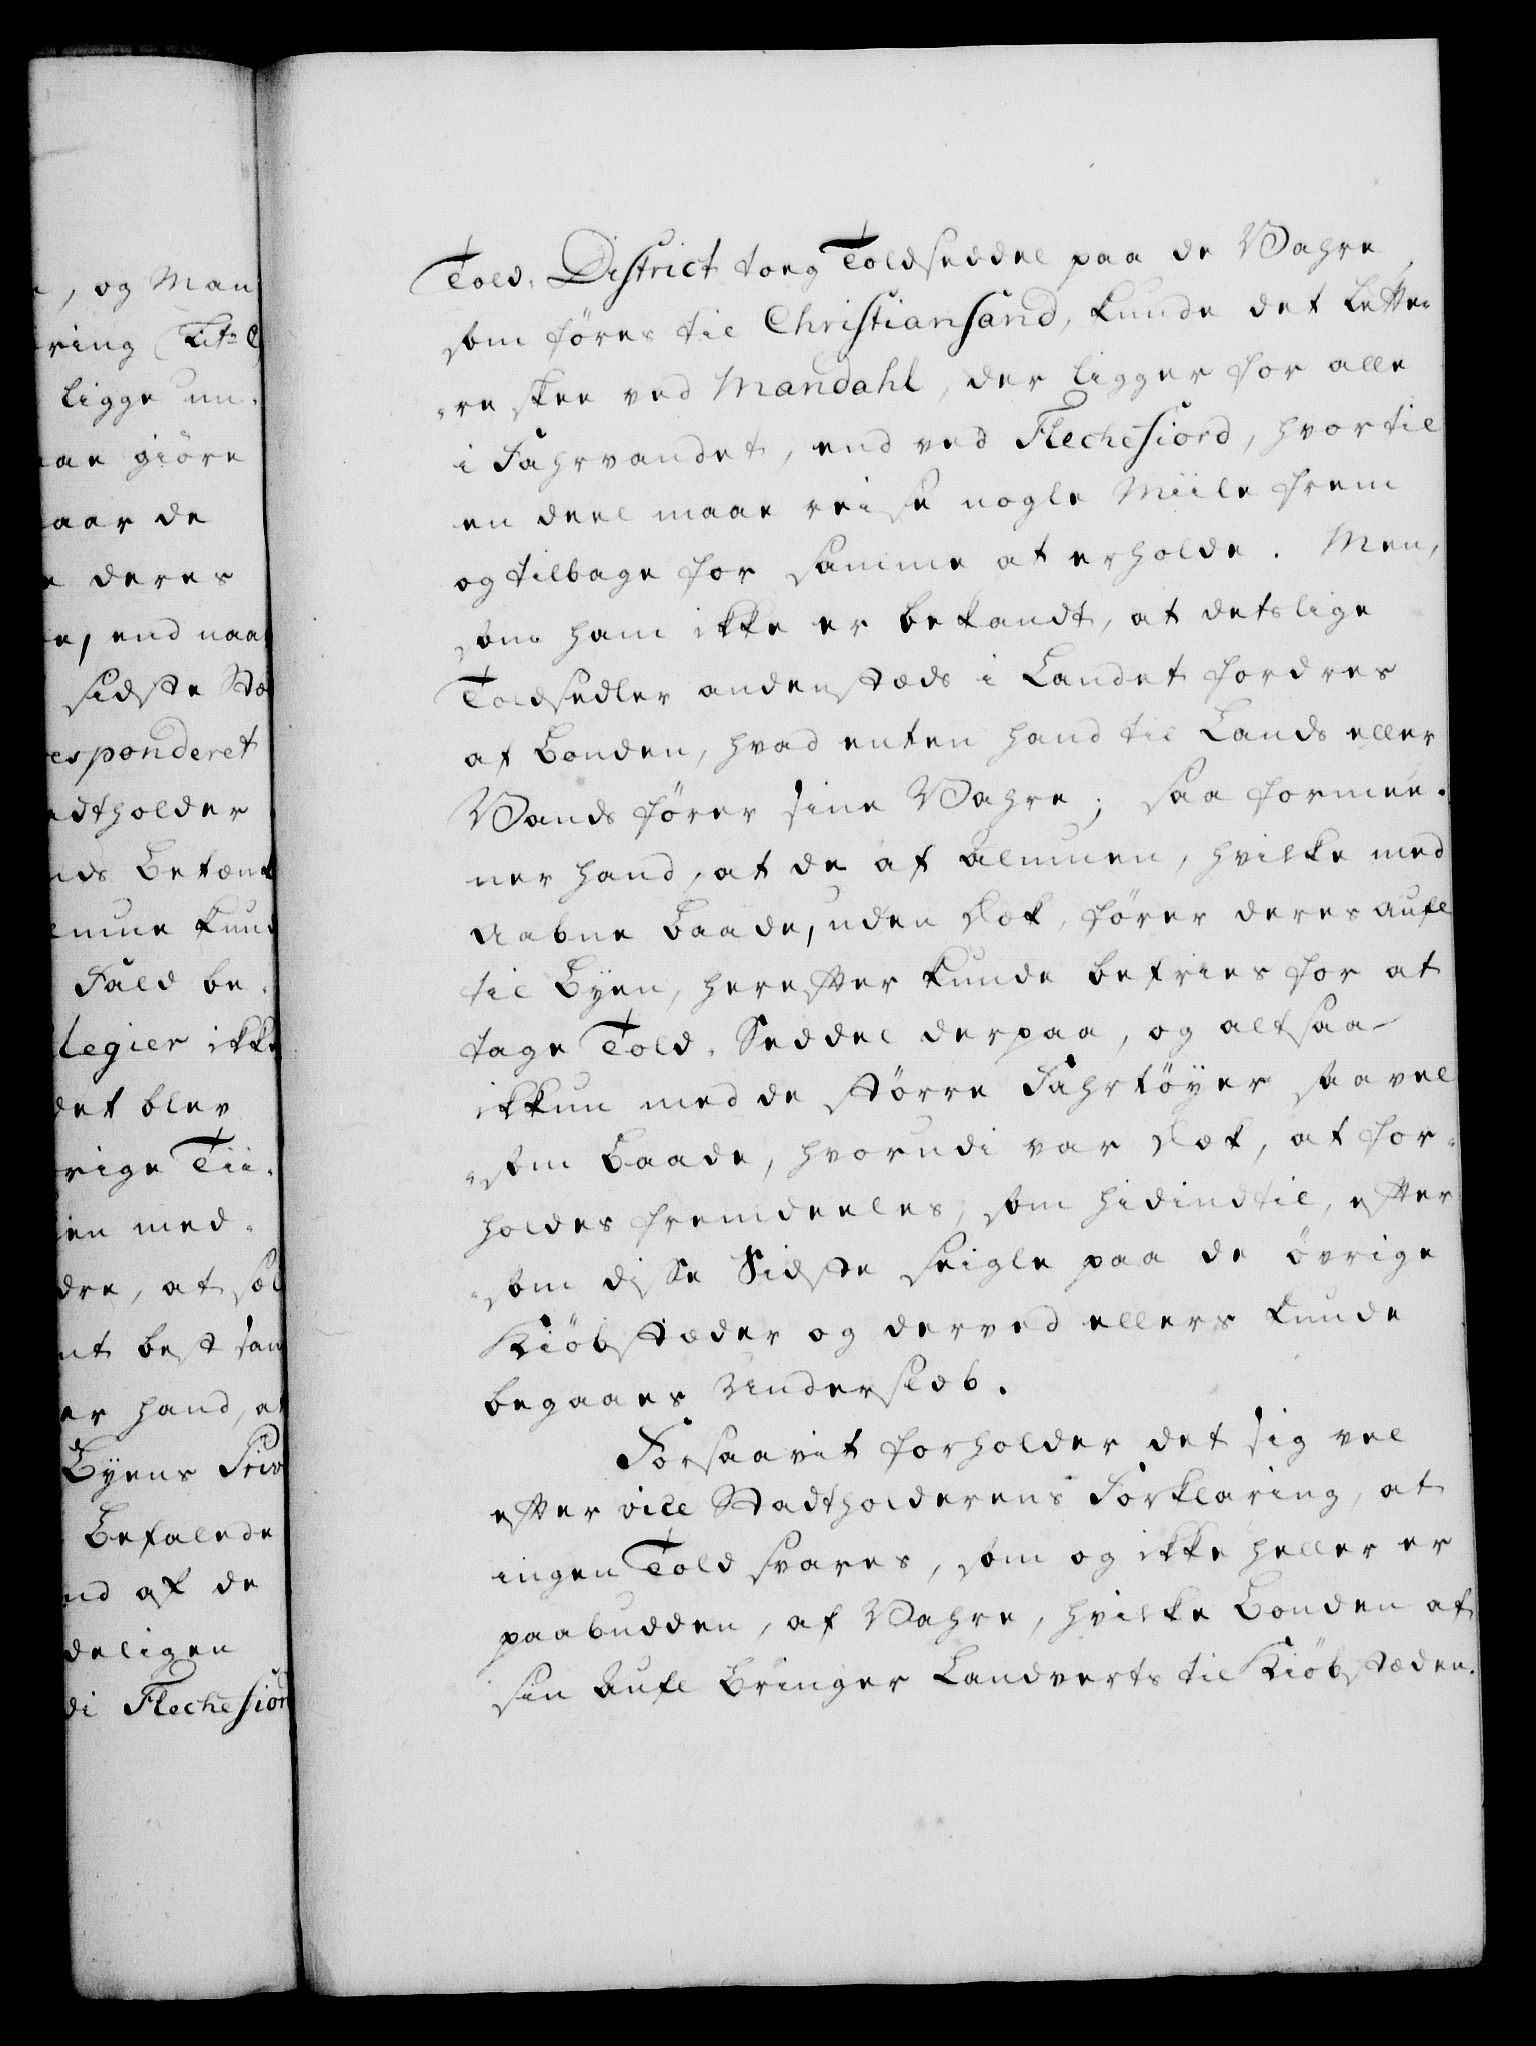 , og Man
ring Lit: C
ligge un-
giöre
aar de
deres
, end naar
sidste
esponderet
adtholder
nds Betænk
emue kund
Fald be-
legier ikke
det blev
rige Tii-
en med-
dre, at
nt best
er hand, at
Byens Priv
Befalede
nd af de
deligen
di Flechefior
Told-District tog Toldseddel paa de Vahre,
som föres til Christiansand, kunde det lette-
re skee ved Mandahl, der ligger for alle
i Fahrvandet, end ved Flechefiord, hvortil
en deel maae reise nogle Miile frem
og tilbage for samme at erholde. Men,
som ham ikke er bekandt, at detslige
Toldsedler andenstæds i Landet fordres
af Bonden, hvad enten hand til Lands eller
Vands förer sine Vahre; saa formee-
ner hand, at de af Almuen, hvilke med
Aabne Baade, uden Dæk, förer deres Aufl
til Byen, herefter kunde befries for at
tage Told-Seddel derpaa, og altsaa
ikkun med de större Fahrtöyer saavel
som Baade, hvorudi var Dæk, at for-
holdes fremdeeles, som hidindtil, efter
som disse Sidste seigle paa de övrige
Kiöbstæder og derved ellers kunde
begaaes Underslæb.
Forsaavit forholder det sig vel
efter vice Stadtholderens Forklaring, at
ingen Told svares, som og ikke heller er
paabudden, af Vahre, hvilke Bonden af
sin Aufl bringer Landverts til Kiöbstæden.